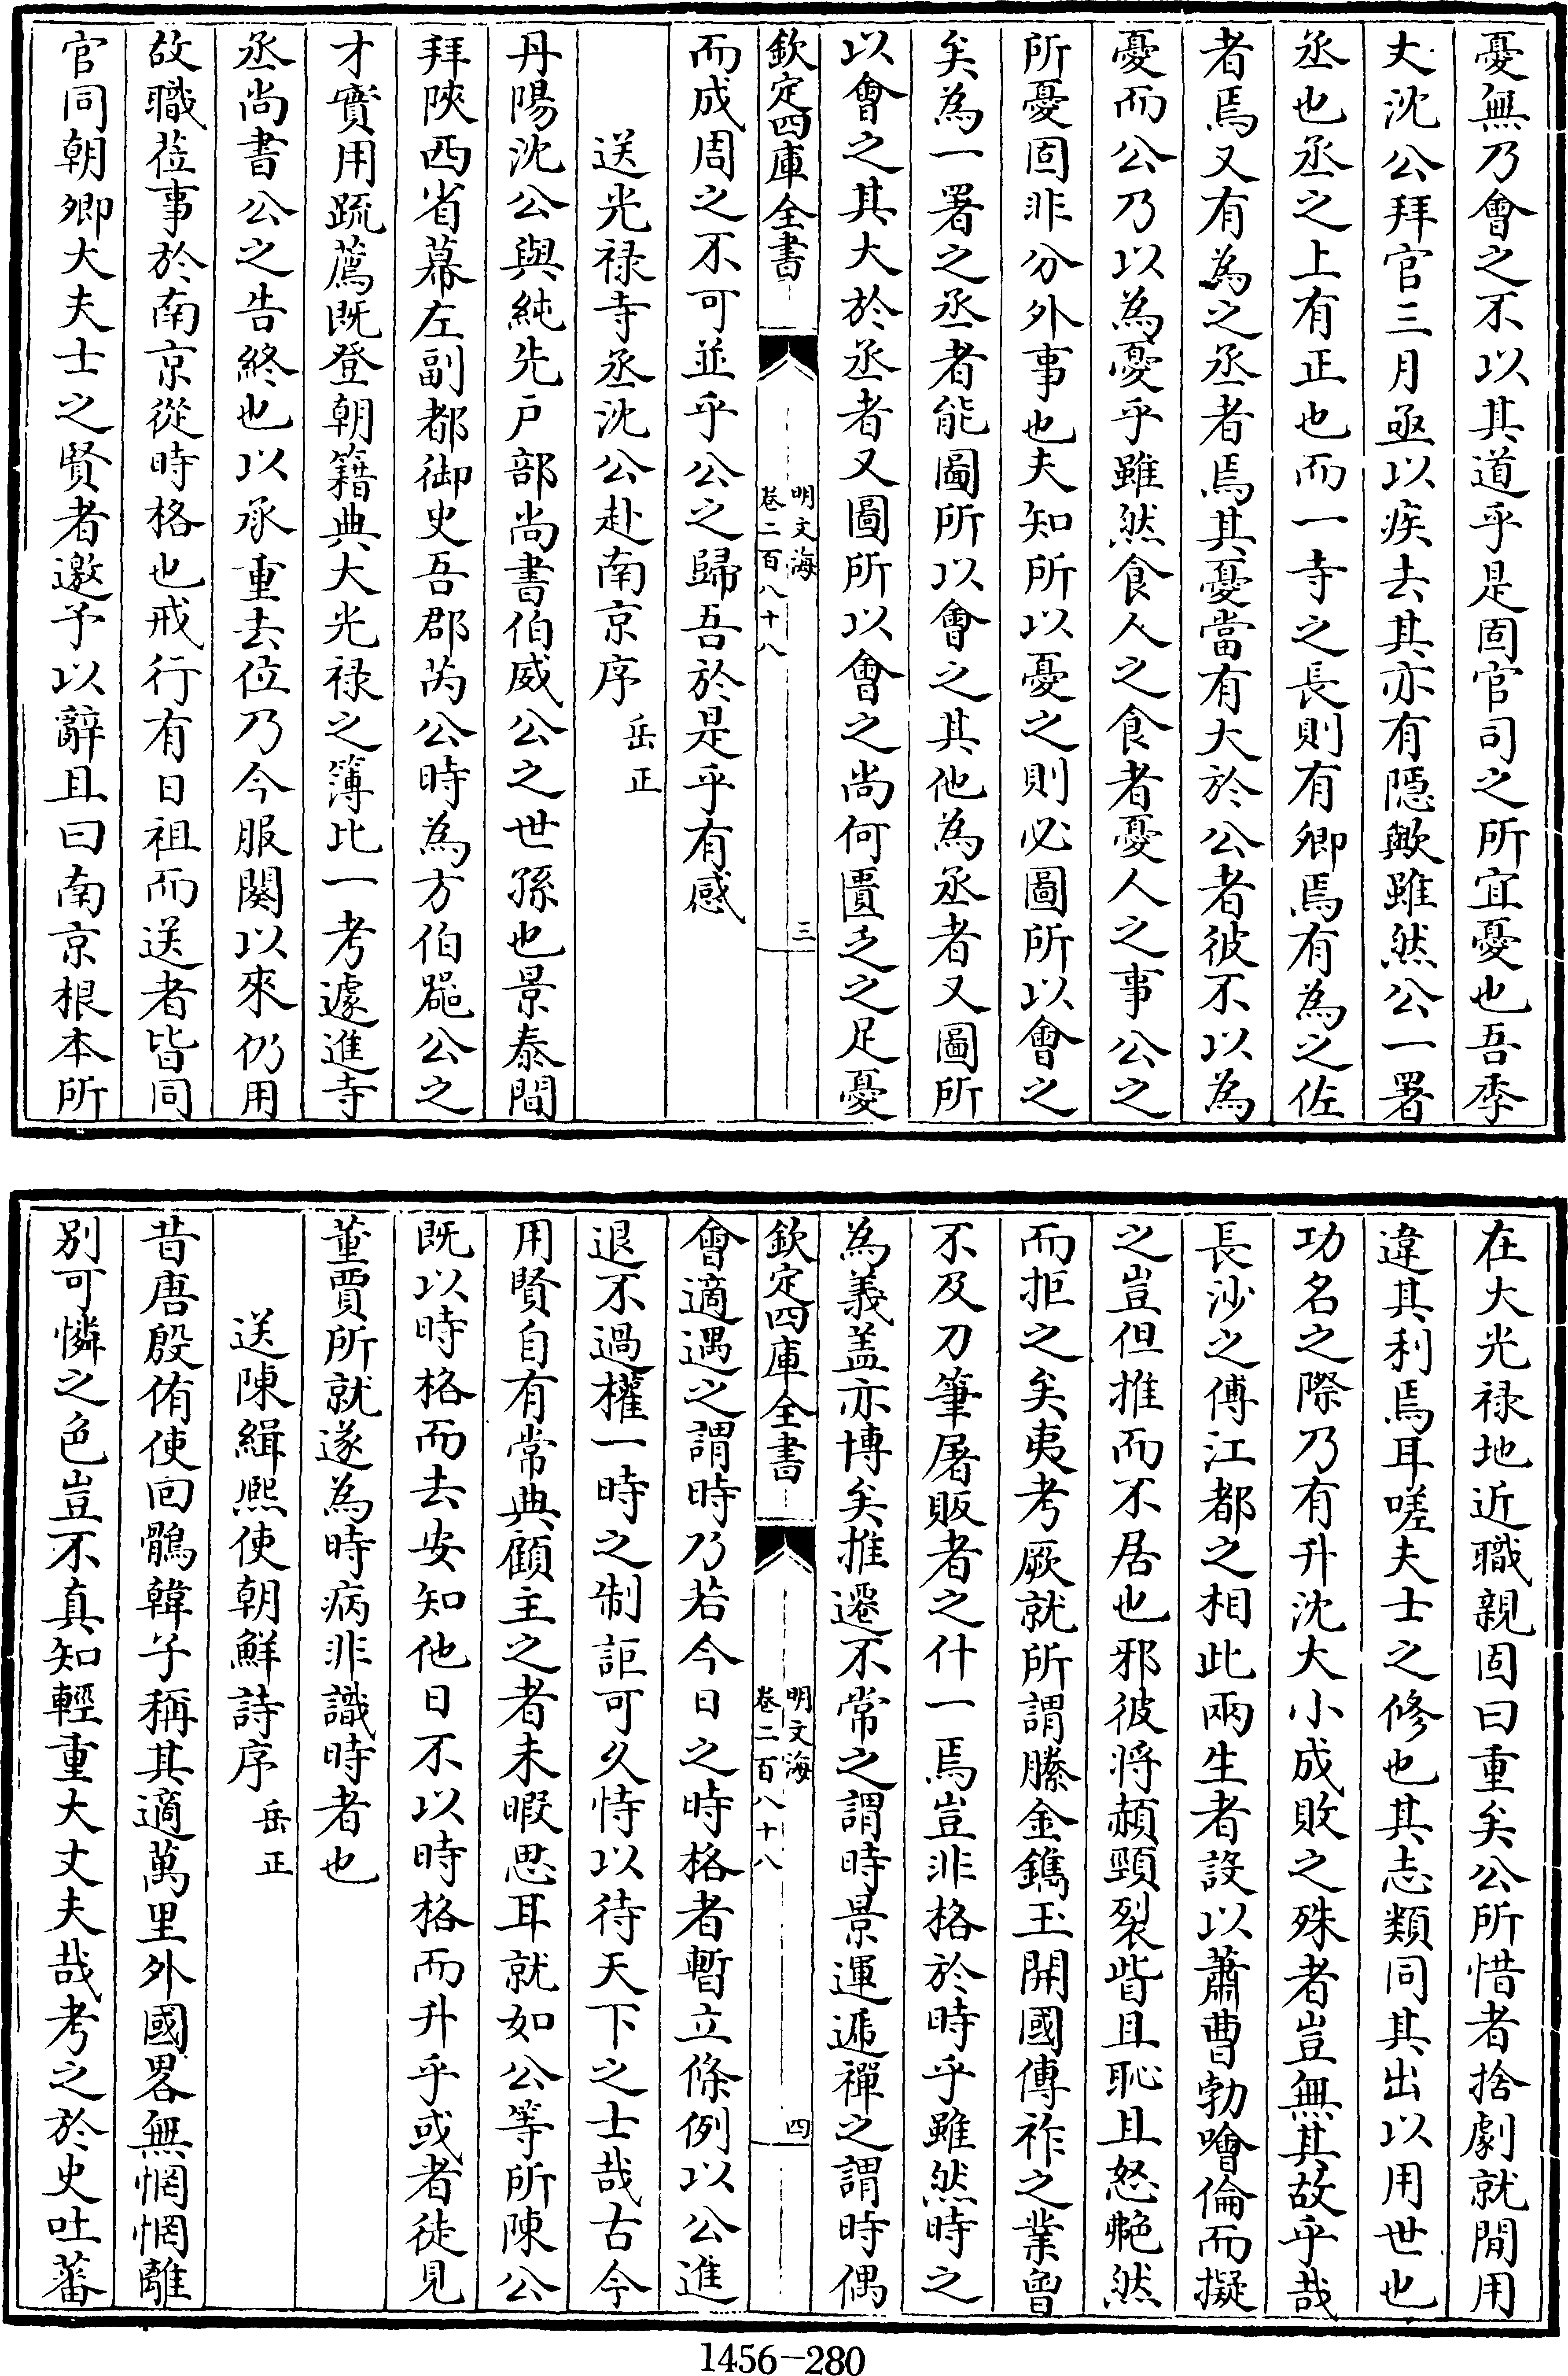 憂無乃會之不以其道乎是固官司之所宜憂也吾季
丈沈公拜官三月亟以疾去其亦有隱歟雖然公一署
丞也丞之上有正也而一寺之長則有卿焉有為之佐
者焉又有為之丞者焉其憂當有大於公者彼不以為
憂而公乃以為憂乎雖然食人之食者憂人之事公之
所憂固非分外事也夫知所以憂之則必圖所以會之
矣為一署之丞者能圖所以會之其他為丞者又圖所
以會之其大於丞者又圖所以會之尚何匱乏之足憂
欽定四庫全書
明文海
卷二百八十八
三
而成周之不可並乎公之歸吾於是乎有感
送光祿寺丞沈公赴南京序 岳正
丹陽沈公與純先戶部尚書伯威公之世孫也景泰間
拜陝西省幕左副都御史吾郡芮公時為方伯器公之
才實用疏薦既登朝籍典大光祿之簿比一考遽進寺
丞尚書公之告終也以承重去位乃今服闋以來仍用
故職蒞事於南京從時格也戒行有日祖而送者皆同
官同朝卿大夫士之賢者邀予以辭且曰南京根本所
在大光祿地近職親固曰重矣公所惜者捨劇就閒用
違其利焉耳嗟夫士之修也其志類同其出以用世也
功名之際乃有升沈大小成敗之殊者豈無其故乎哉
長沙之傅江都之相此兩生者設以蕭曹勃噲倫而擬
之豈但推而不居也邪彼將頳頸裂眥且恥且怒艴然
而拒之矣夷考厥就所謂縢金鐫玉開國傳祚之業曾
不及刀筆屠販者之什一焉豈非格於時乎雖然時之
為義盖亦博矣推遷不常之謂時景運遞禪之謂時偶
欽定四庫全書
明文海
卷二百八十八
四
會適遇之謂時乃若今日之時格者暫立條例以公進
退不過權一時之制詎可久恃以待天下之士哉古今
用賢自有常典顧主之者未暇思耳就如公等所陳公
既以時格而去安知他日不以時格而升乎或者徒見
董賈所就遂為時病非識時者也
送陳緝熙使朝鮮詩序 岳正
昔唐殷侑使回鶻韓子稱其適萬里外國畧無惘惘離
別可憐之色豈不真知輕重大丈夫哉考之於史吐蕃
1456-280